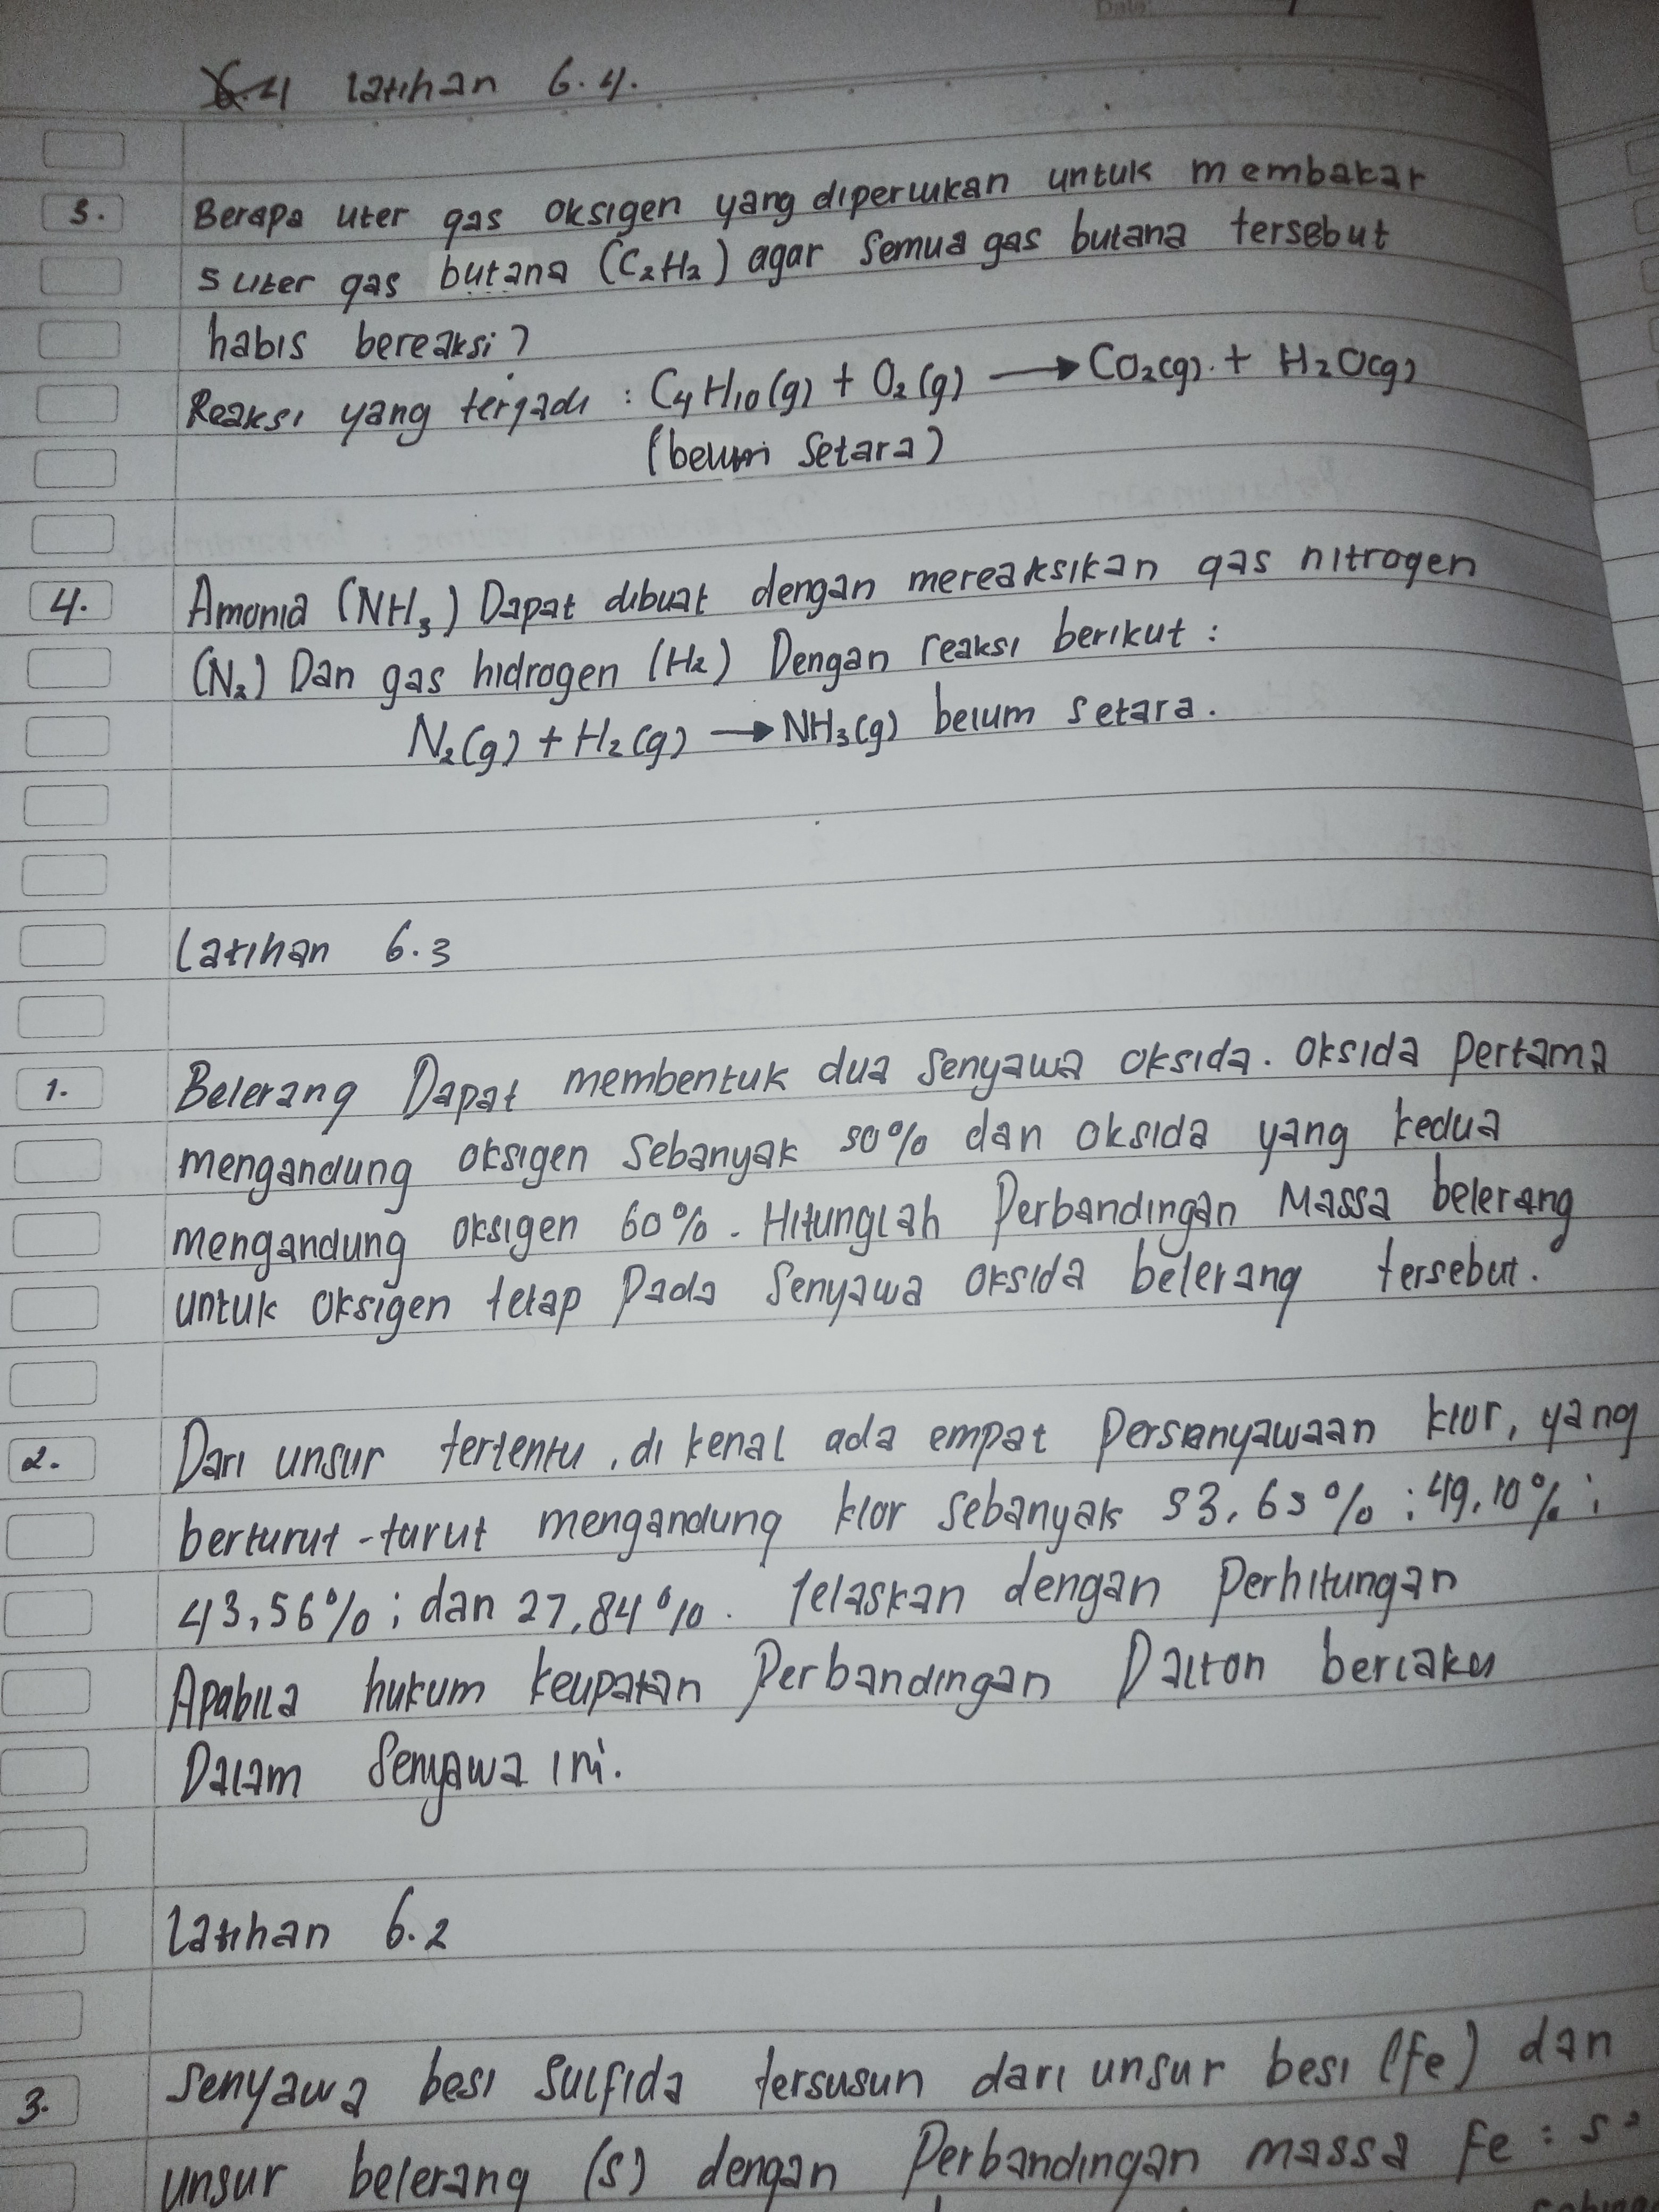 Date:
6.4 Latihan 6.4.
3. Berapa liter gas oksigen yang diperlukan untuk membakar
5 liter gas butana (C₂H₂) agar semua gas butana tersebut
habis bereaksi?
Reaksi yang terjadi : C₄H₁₀(g) + O₂(g) → CO₂(g). + H₂O(g)
(belum setara)
4. Amonia (NH₃) Dapat dibuat dengan mereaksikan gas nitrogen
(N₂) Dan gas hidrogen (H₂) Dengan reaksi berikut :
N₂(g) + H₂(g) → NH₃(g) belum setara.
Latihan 6.3
1. Belerang Dapat membentuk dua senyawa oksida. Oksida pertama
mengandung oksigen sebanyak 50% dan oksida yang kedua
mengandung oksigen 60%. Hitunglah Perbandingan Massa belerang
untuk oksigen tetap Pada Senyawa oksida belerang tersebut.
2. Dari unsur tertentu, di kenal ada empat Persenyawaan klor, yang
berturut-turut mengandung klor sebanyak 53,63% ; 49,10% ;
43,56% ; dan 27,84%. Jelaskan dengan Perhitungan
Apabila hukum kelipatan Perbandingan Dalton berlaku
Dalam Senyawa ini.
Latihan 6.2
3. Senyawa besi Sulfida tersusun dari unsur besi (Fe) dan
unsur belerang (S) dengan Perbandingan massa Fe : S =